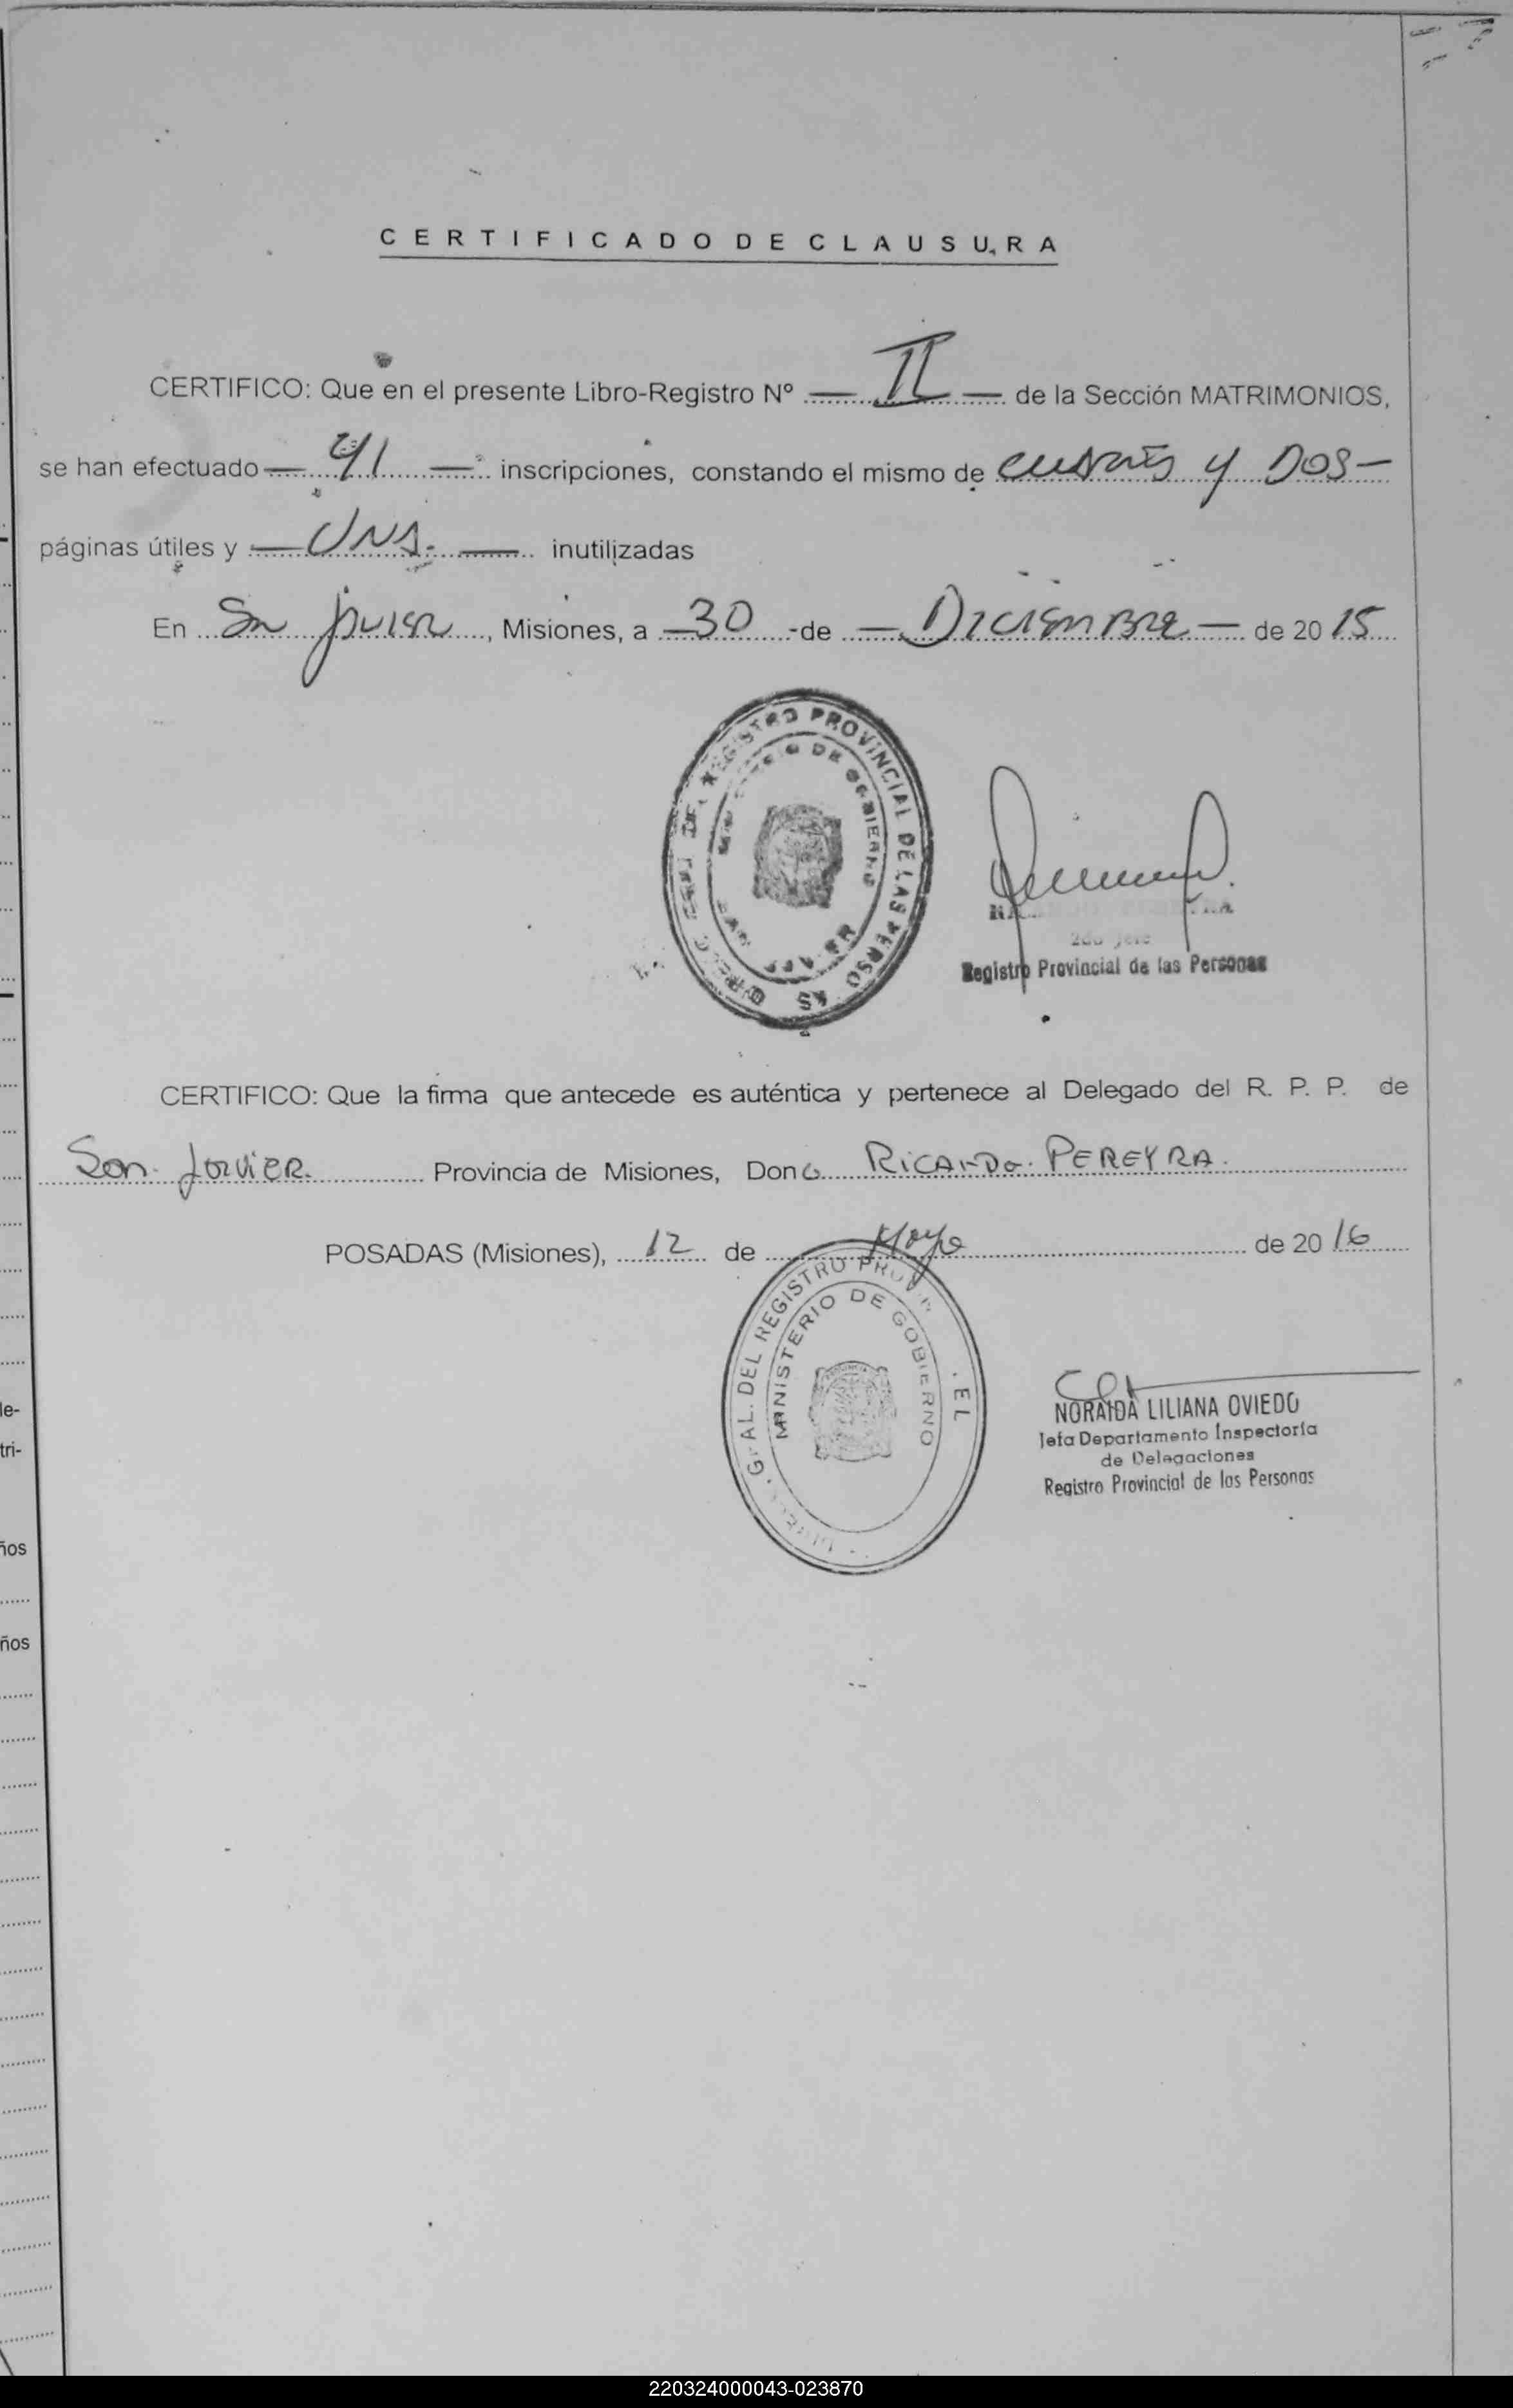 CERTIFICADO DE CLAUSURA
CERTIFICO: Que en el presente Libro-Registro Nº — II — de la Sección MATRIMONIOS,
se han efectuado — 41 — inscripciones, constando el mismo de cuarenta y DOS —
páginas útiles y — UNA. — inutilizadas
En San Javier, Misiones, a — 30 - de — Diciembre — de 2015
REGISTRO PROVINCIAL DE LAS PERSO AS
DE GOBIERNO
2do Jefe
Registro Provincial de las Personas
CERTIFICO: Que la firma que antecede es auténtica y pertenece al Delegado del R. P. P. de
San Javier Provincia de Misiones, Don RICARDO PEREYRA
POSADAS (Misiones), 12 de Mayo de 2016
GRAL. DEL REGISTRO PROV
MINISTERIO DE GOBIERNO
NORAIDA LILIANA OVIEDO
Jefa Departamento Inspectoría
de Delegaciones
Registro Provincial de las Personas
le-
tri-
ños
ños
220324000043-023870